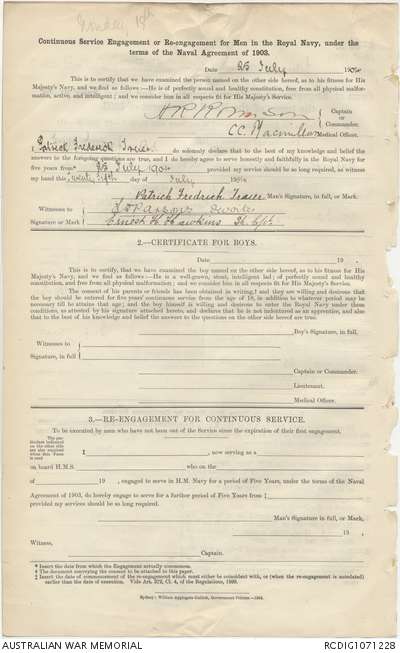 Continuous Service Engagement or Re-engagement for Men in the Royal Navy, under the
terms of the Naval Agreement of 1903.
Date 25 July 190
This is to certify that we have examined the person named on the other side hereof, as to his fitness for His
Majesty's Navy, and we find as follows :—He is of perfectly sound and healthy constitution, free from all physical malfor-
mation, active, and intelligent ; and we consider him in all respects fit for His Majesty's Service.
Captain
or
Commander.
C.C. Macmillan Medical Officer.
I, Patrick Fredrick do solemnly declare that to the best of my knowledge and belief the
answers to the foregoing questions are true, and I do hereby agree to serve honestly and faithfully in the Royal Navy for
five years from* 25 July 190 provided my service should be so long required, as witness
my hand this twenty fifth day of July 190
Patrick Fredrick Man's Signature, in full, or Mark.
Witnesses to
Signature or Mark Hawkins
2.—CERTIFICATE FOR BOYS.
Date 19 .
This is to certify, that we have examined the boy named on the other side hereof, as to his fitness for His
Majesty's Navy, and we find as follows :—He is a well-grown, stout, intelligent lad ; of perfectly sound and healthy
constitution, and free from all physical malformation.
The consent of his parents or friends has been obtained in writing,† and they are willing and desirous that
the boy should be entered for five years' continuous service from the age of 18, in addition to whatever period may be
necessary till he attains that age ; and the boy himself is willing and desirous to enter the Royal Navy under these
conditions, as attested by his signature attached hereto, and declares that he is not indentured as an apprentice, and also
that to the best of his knowledge and belief the answers to the questions on the other side hereof are true.
Boy's Signature, in full.
Witnesses to
Signature, in full
Captain or Commander.
Lieutenant.
Medical Officer.
3.—RE-ENGAGEMENT FOR CONTINUOUS SERVICE.
To be executed by men who have not been out of the Service since the expiration of their first engagement.
The particulars indicated
on the other side
are also required
when this Form
is used
I , now serving as a
on board H.M.S. who on the
of 19 , engaged to serve in H.M. Navy for a period of Five Years, under the terms of the Naval
Agreement of 1903, do hereby engage to serve for a further period of Five Years from ‡
provided my services should be so long required.
Man's Signature in full, or Mark,
19 .
Witness,
Captain.
* Insert the date from which the Engagement actually commences.
† The document conveying the consent to be attached to this paper.
‡ Insert date of commencement of the re-engagement which must either be coincident with, or (when the re-engagement is antedated)
earlier than the date of execution.
Sydney : William Applegate Gullick, Government Printer.
AUSTRALIAN WAR MEMORIAL
RCDIG1071228